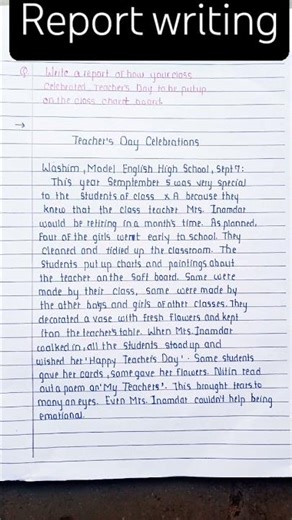 Report writing
Q Write a report of how your class
celebrated Teacher's Day to be put up
on the class chart board.
→
Teacher's Day Celebrations
Washim, Model English High School, Sept 7:
This year Semptember 5 was very special
to the students of class X A because they
knew that the class teacher Mrs. Inamdar
would be retiring in a month's time. As planned,
Four of the girls went early to school. They
cleaned and tidied up the classroom. The
students put up charts and paintings about
the teacher on the soft board. Some were
made by their class, some were made by
the other boys and girls of other classes. They
decorated a vase with fresh flowers and kept
it on the teacher's table. When Mrs. Inamdar
walked in, all the students stood up and
wished her 'Happy Teacher's Day'. Some students
gave her cards, some gave her flowers. Nitin read
out a poem on 'My Teachers'. This brought tears to
many an eyes. Even Mrs. Inamdar couldn't help being
emotional.